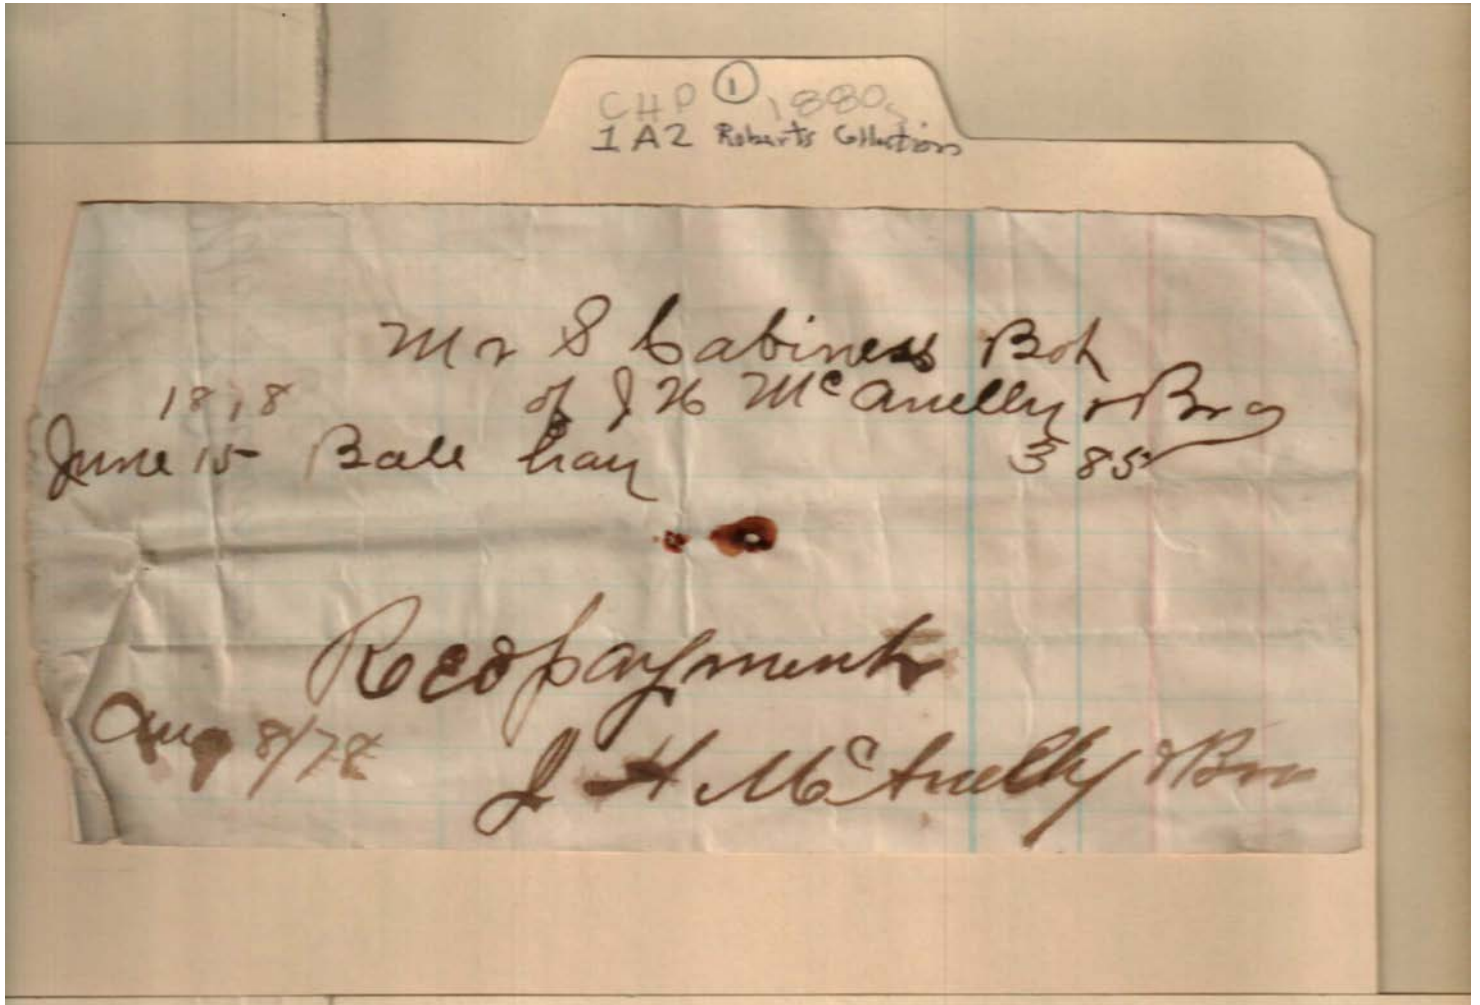 CHP ① 1880s
1A2 Roberts Collection
Mr S Cabiness Bot
1878 of J H McAnelly & Bro
June 15 Bale hay 3 85
Recd payment
Aug 8/78
J H McAnelly & Bro